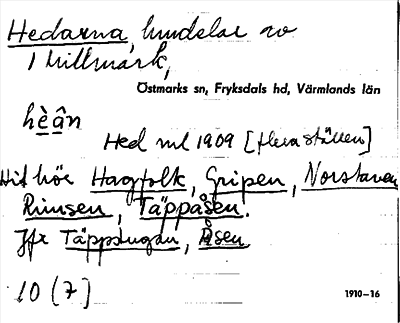 Hedarna, hundelar av
1 Millmark,
Östmarks sn, Fryksdals hd, Värmlands län
hèân
Hed ml 1909 [flera ställen]
Hit hör Hagfolk, Gripen, Norstaven
Rimsen, Täppåsen.
Jfr Täppstugan, Åsen
10 (7)
1910–16